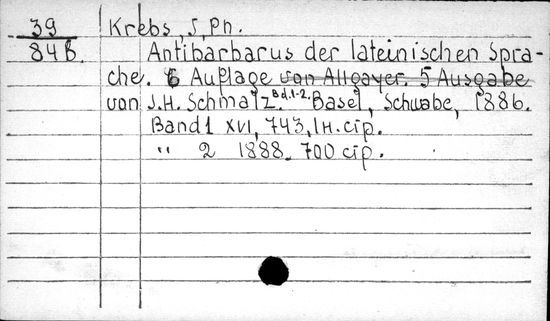 39 Krebs, J, Ph.
84 B. Antibarbarus der lateinischen Spra-
che. 6 Auflage von Allgayer. 5 Ausgabe
von J.H. Schmalz. Bd. 1-2. Basel, Schwabe, 1886.
Band 1 XVI, 743, 1 н. стр.
" 2 1888. 700 стр.